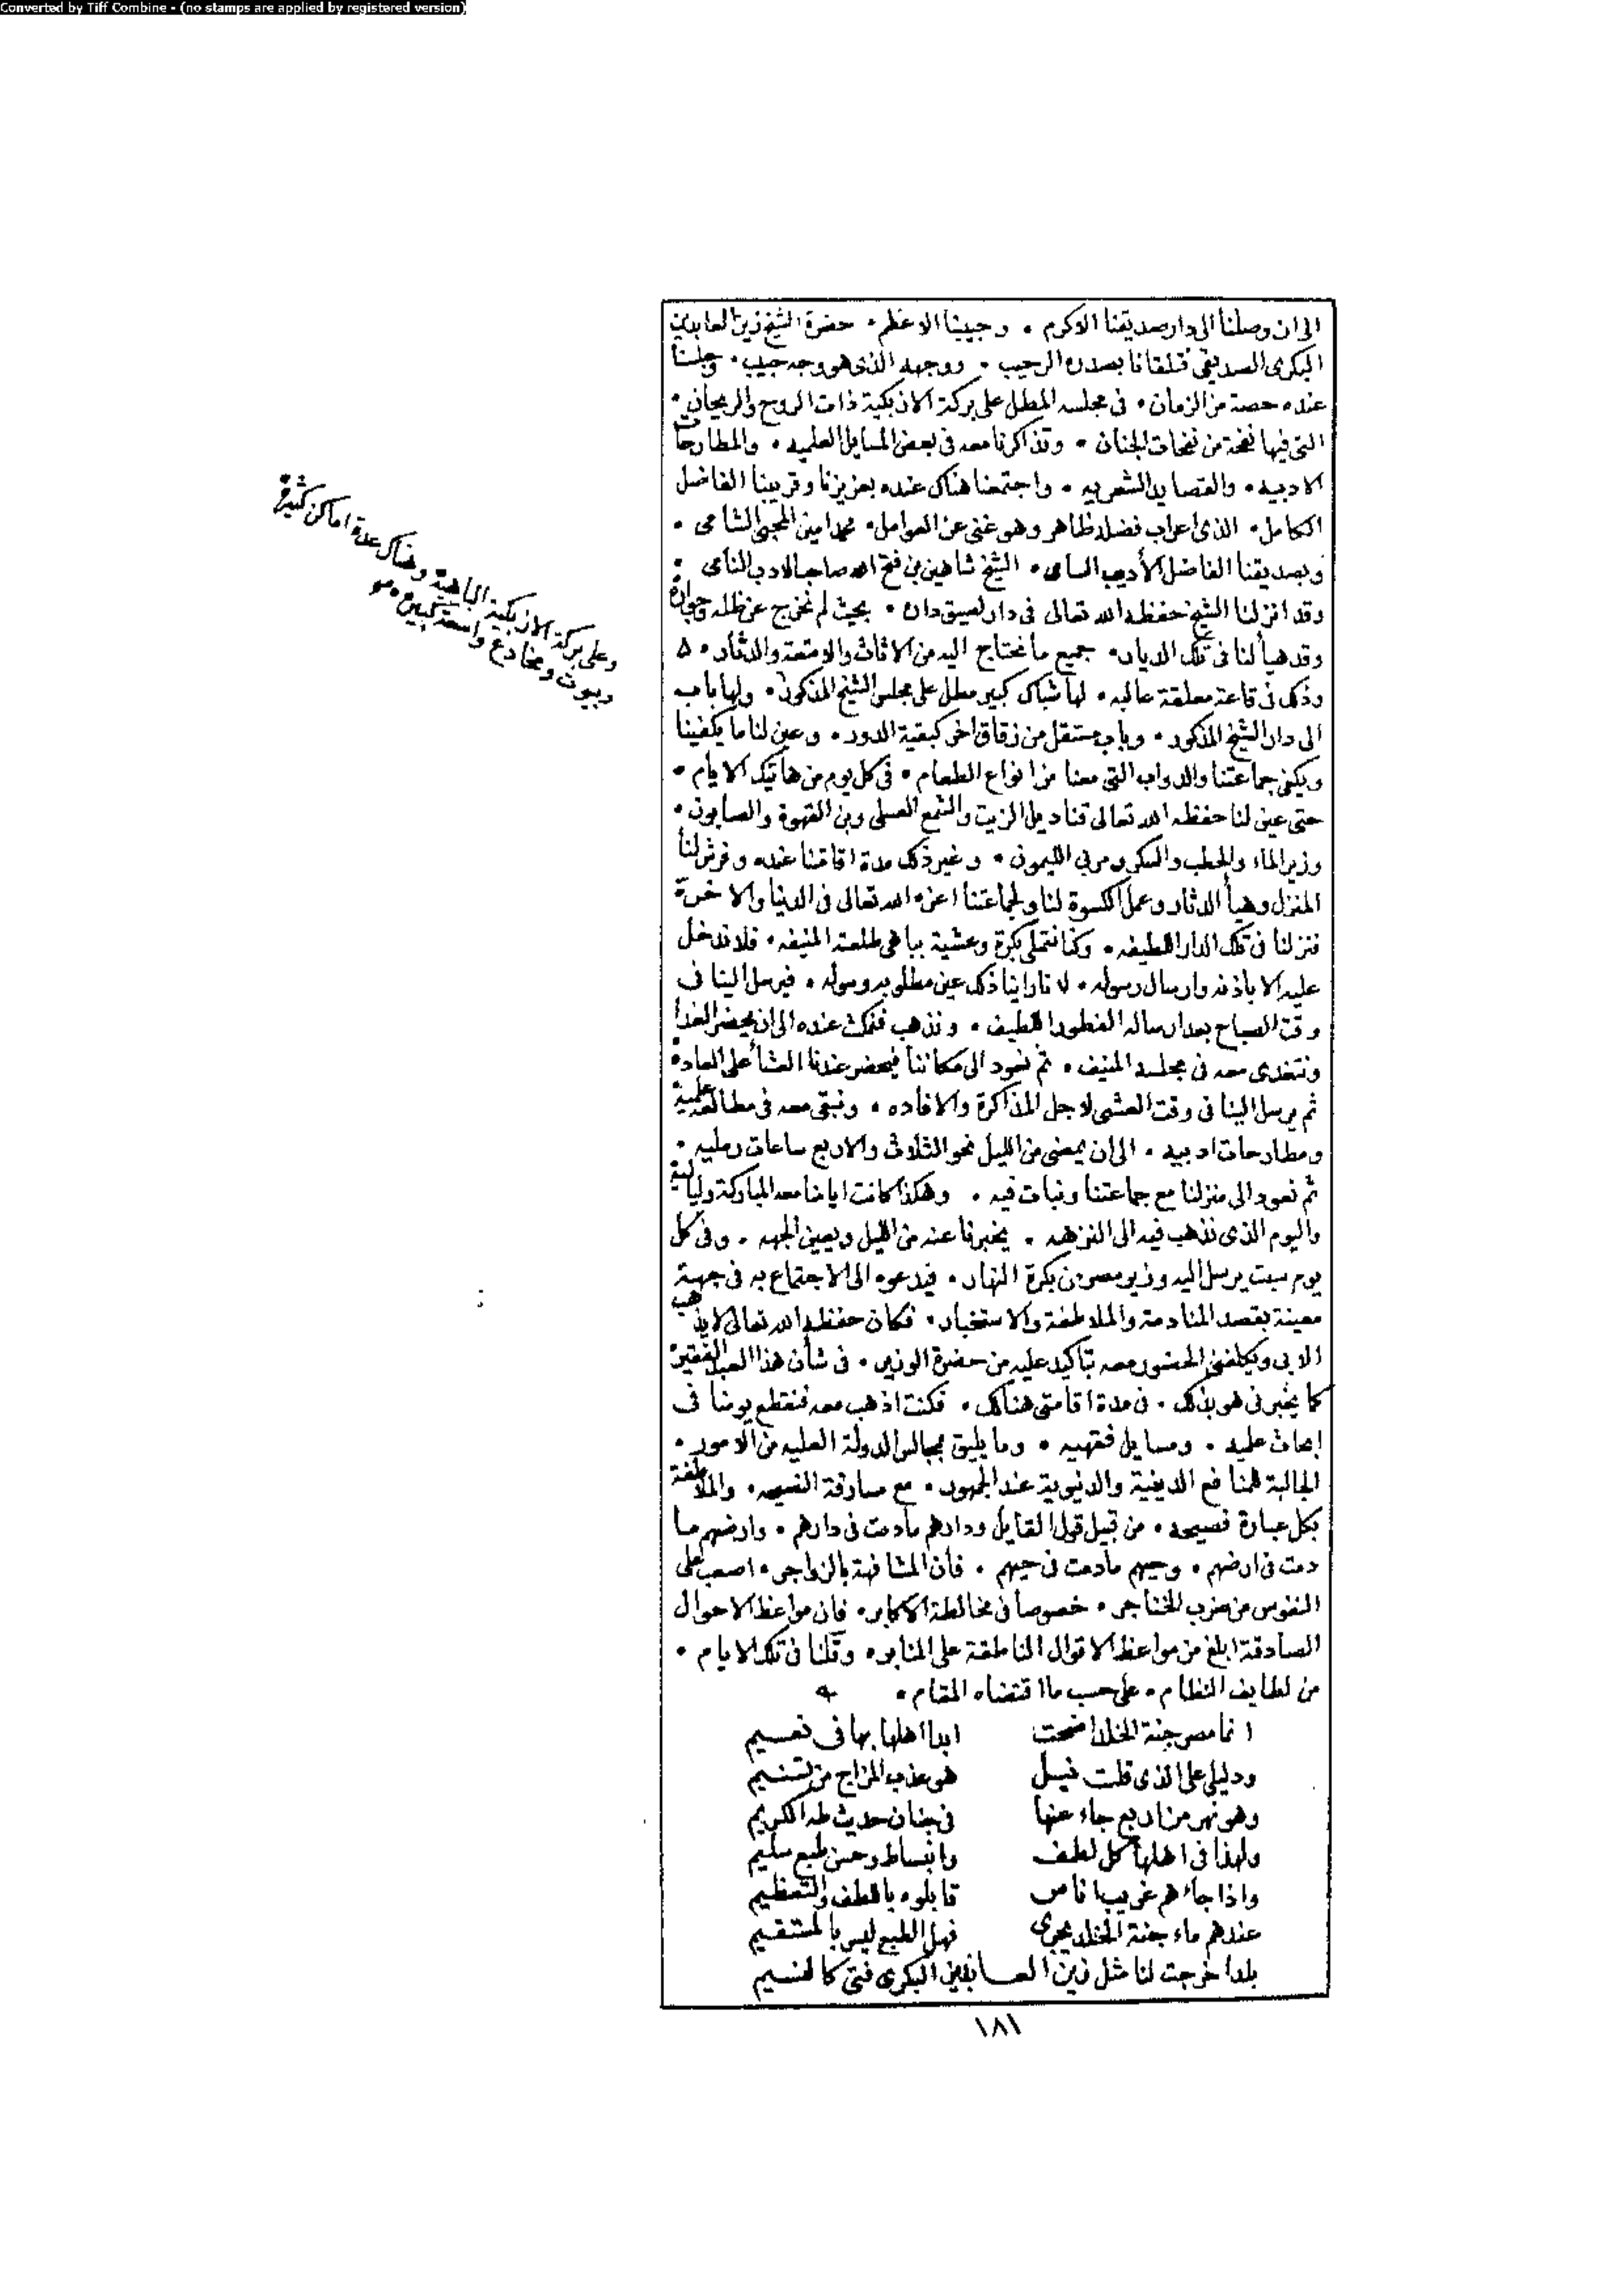 Converted by Tiff Combine - (no stamps are applied by registered version)
الى ان وصلنا الى دار صديقنا الاكرم • وحبيبنا الاعظم • حضرة الشيخ زين العابدين
البكرى الصديقى فتلقانا بصدره الرحيب • ووجهه الذى هو وجه حبيب • وجلسنا
عنده حصة من الزمان • فى مجلسه المطل على بركة الازبكية ذات الروح والريحان •
التى فيها نفحة من نفحات الجنان • وتذاكرنا معه فى بعض المسايل العلميه • والمطارحات
الادبيه • والقصايد الشعريه • واجتمعنا هناك عنده بعزيزنا وقريبنا الفاضل
الكامل • الذى اعراب فضله ظاهر وهو غنى عن العوامل • محمد امين المحبى الشامى •
وبصديقنا الفاضل الأديب السامى • الشيخ شاهين بن فتح الله صاحب الادب النامى •
وقد انزلنا الشيخ حفظه الله تعالى فى دار لصيق داره • بحيث لم نخرج عن ظله وجواره
وقد هيأ لنا فى تلك الديار • جميع ما نحتاج اليه من الاثاث والامتعة والدثار • ۵
وذلك فى قاعة معلقة عاليه • لها شباك كبير مطل على مجلس الشيخ المذكور • ولها باب
الى دار الشيخ المذكور • وباب مستقل من زقاق اخر كبقية الدور • وعين لنا ما يكفينا
ويكفى جماعتنا والدواب التى معنا من انواع الطعام • فى كل يوم من هاتيك الايام •
حتى عين لنا حفظه الله تعالى قناديل الزيت والشمع العسلى وبن القهوة والصابون •
وزير الماء والحطب والسكر ومربى الليمون • وغير ذلك مدة اقامتنا عنده وفرش لنا
المنزل وهيأ الدثار وعمل الكسوة لنا ولجماعتنا اعزه الله تعالى فى الدنيا والاخرة
فنزلنا فى تلك الدار اللطيفه • وكنا نتملى بكرة وعشية بباهى طلعته المنيفه • فلا ندخل
عليه الا باذنه وارسال رسوله • لانا راينا ذلك عين مطلوبه وسوله • فيرسل الينا فى
وقت الصباح بعد ارساله الفطور اللطيف • ونذهب فنمكث عنده الى ان يحضر الغدا
ونتغدى معه فى مجلسه المنيف • ثم نعود الى مكاننا فيحضر عندنا العشا على العاده
ثم يرسل الينا فى وقت العشى لاجل المذاكرة والافاده • ونبقى معه فى مطالعة علمية
ومطارحات ادبيه • الى ان يمضى من الليل نحو الثلاث والاربع ساعات رمليه •
ثم نعود الى منزلنا مع جماعتنا ونبات فيه • وهكذا كانت ايامنا معه المباركة ولياليه
واليوم الذى نذهب فيه الى النزهه • يخبرنا عنه من الليل ويعين الجهه • وفى كل
يوم سبت يرسل اليه وزير مصر من بكرة النهار • فيدعوه الى الاجتماع به فى جهة
معينة بقصد المنادمة والملاطفة والاستخبار • فكان حفظه الله تعالى لا يذهب
الا بى ويكلفنى الحضور معه بتاكيد عليه من حضرة الوزير • فى شأن هذا العبد الفقير
كما يخبرنى هو بذلك • فى مدة اقامتى هنالك • فكنت اذهب معه فنقطع يومنا فى
ابحاث علميه • ومسايل فقهيه • وما يليق بمجالس الدولة العليه من الامور •
الجالبة للمنافع الدينية والدنيوية عند الجمهور • مع مسارقة النصيحه • والملاطفة
بكل عبارة فصيحه • من قبيل قول القايل ودارهم مادمت فى دارهم • وارضهم ما
دمت فى ارضهم • وحيهم مادمت فى حيهم • فأن المشافهة بالزواجر • اصعب على
النفوس من ضرب الخناجر • خصوصا فى مخالطة الاكابر • فان مواعظ الاحوال
الصادقة ابلغ من مواعظ الاقوال الناطقة على المنابر • وقلنا فى تلك الايام •
من لطايف النظام • على حسب ما اقتضاه المقام •
انما مصر جنة الخلد اضحت ابدا اهلها بها فى نعيم
ودليلى على الذى قلت نيل هو عذب المزاج من تسنيم
وهو نهر من اربع جاء عنها فى جنان حديث طه الكريم
ولهذا فى اهلها كل لطف وانبساط وحسن طبع سليم
واذا جاءهم غريب اناس قابلوه باللطف والتعظيم
عندهم ماء جنة الخلد يجرى فهل الطبع ليس بالمستقيم
بلد اخرجت لنا مثل زين العــابدين البكرى فتى كالنسيم
١٨١
وعلى بركة الازبكية الباهية وهناك عدة اماكن كثيرة
وبيوت ومخادع واسعة كبيرة